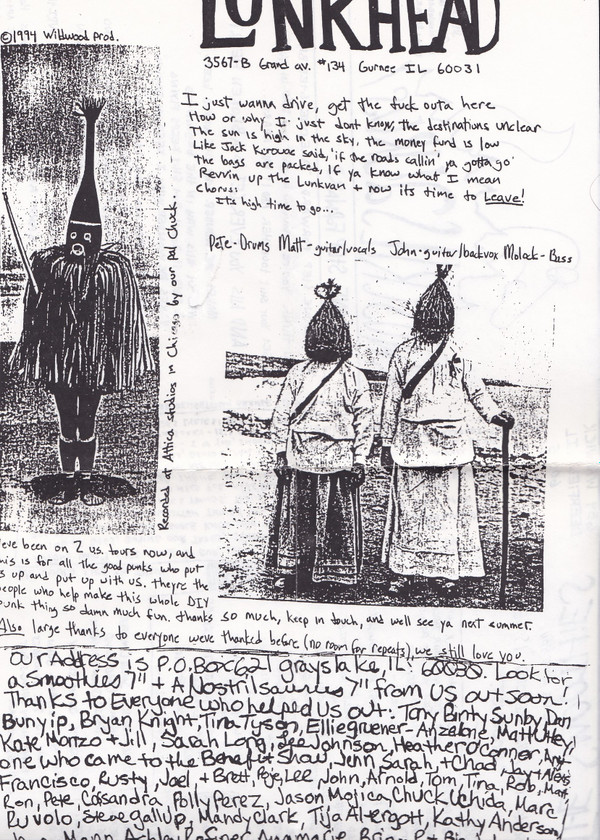 LUNKHEAD
©1994 Wildwood Prod.
3567-B Grand av. #134 Gurnee IL 60031
I just wanna drive, get the fuck outa here
How or why I just dont know, the destinations unclear
The sun is high in the sky, the money fund is low
Like Jack Kerouac said, 'if the roads callin' ya gotta go'
the bags are packed, If ya know what I mean
Revvin up the Lunkvan + now its time to Leave!
Chorus:
Its high time to go...
Pete-Drums Matt-guitar/vocals John-guitar/backvox Molack-Bass
Recorded at Attica studios in Chicago by our pal Chuck.
eve been on 2 us. tours now, and
his is for all the good punks who put
s up and put up with us. theyre the
eople who help make this whole DIY
punk thing so damn much fun. thanks so much, keep in touch, and well see ya next summer.
Also large thanks to everyone weve thanked before (no room for repeats), we still love you.
Our Address is P.O. Box 621 grayslake, IL. 60030. Look for
a Smoothies 7" + A Nostrilsaurus 7" from us out soon!
Thanks to Everyone who helped us out: Tony Binty Sunby, Dan
Bunyip, Bryan Knight, Tina Tyson, Ellie gruener-Anzelone, Matt Utley
Kate Monzo + Jill, Sarah Long, Lee Johnson, Heather O'Connor, Any-
one who came to the Benefit Show, Jenn, Sarah, + Chad, Jay +
Francisco, Rusty, Joel, + Brett, Poje, Lee, John, Arnold, Tom, Tina, Rob, Matt
Ron, Pete, Cassandra, Polly Perez, Jason Mojica, Chuck Uchida, Marc
Ruvolo, Steve gallup, Mandy Clark, Tija Altergott, Kathy Anderson,
Mann, Ashley